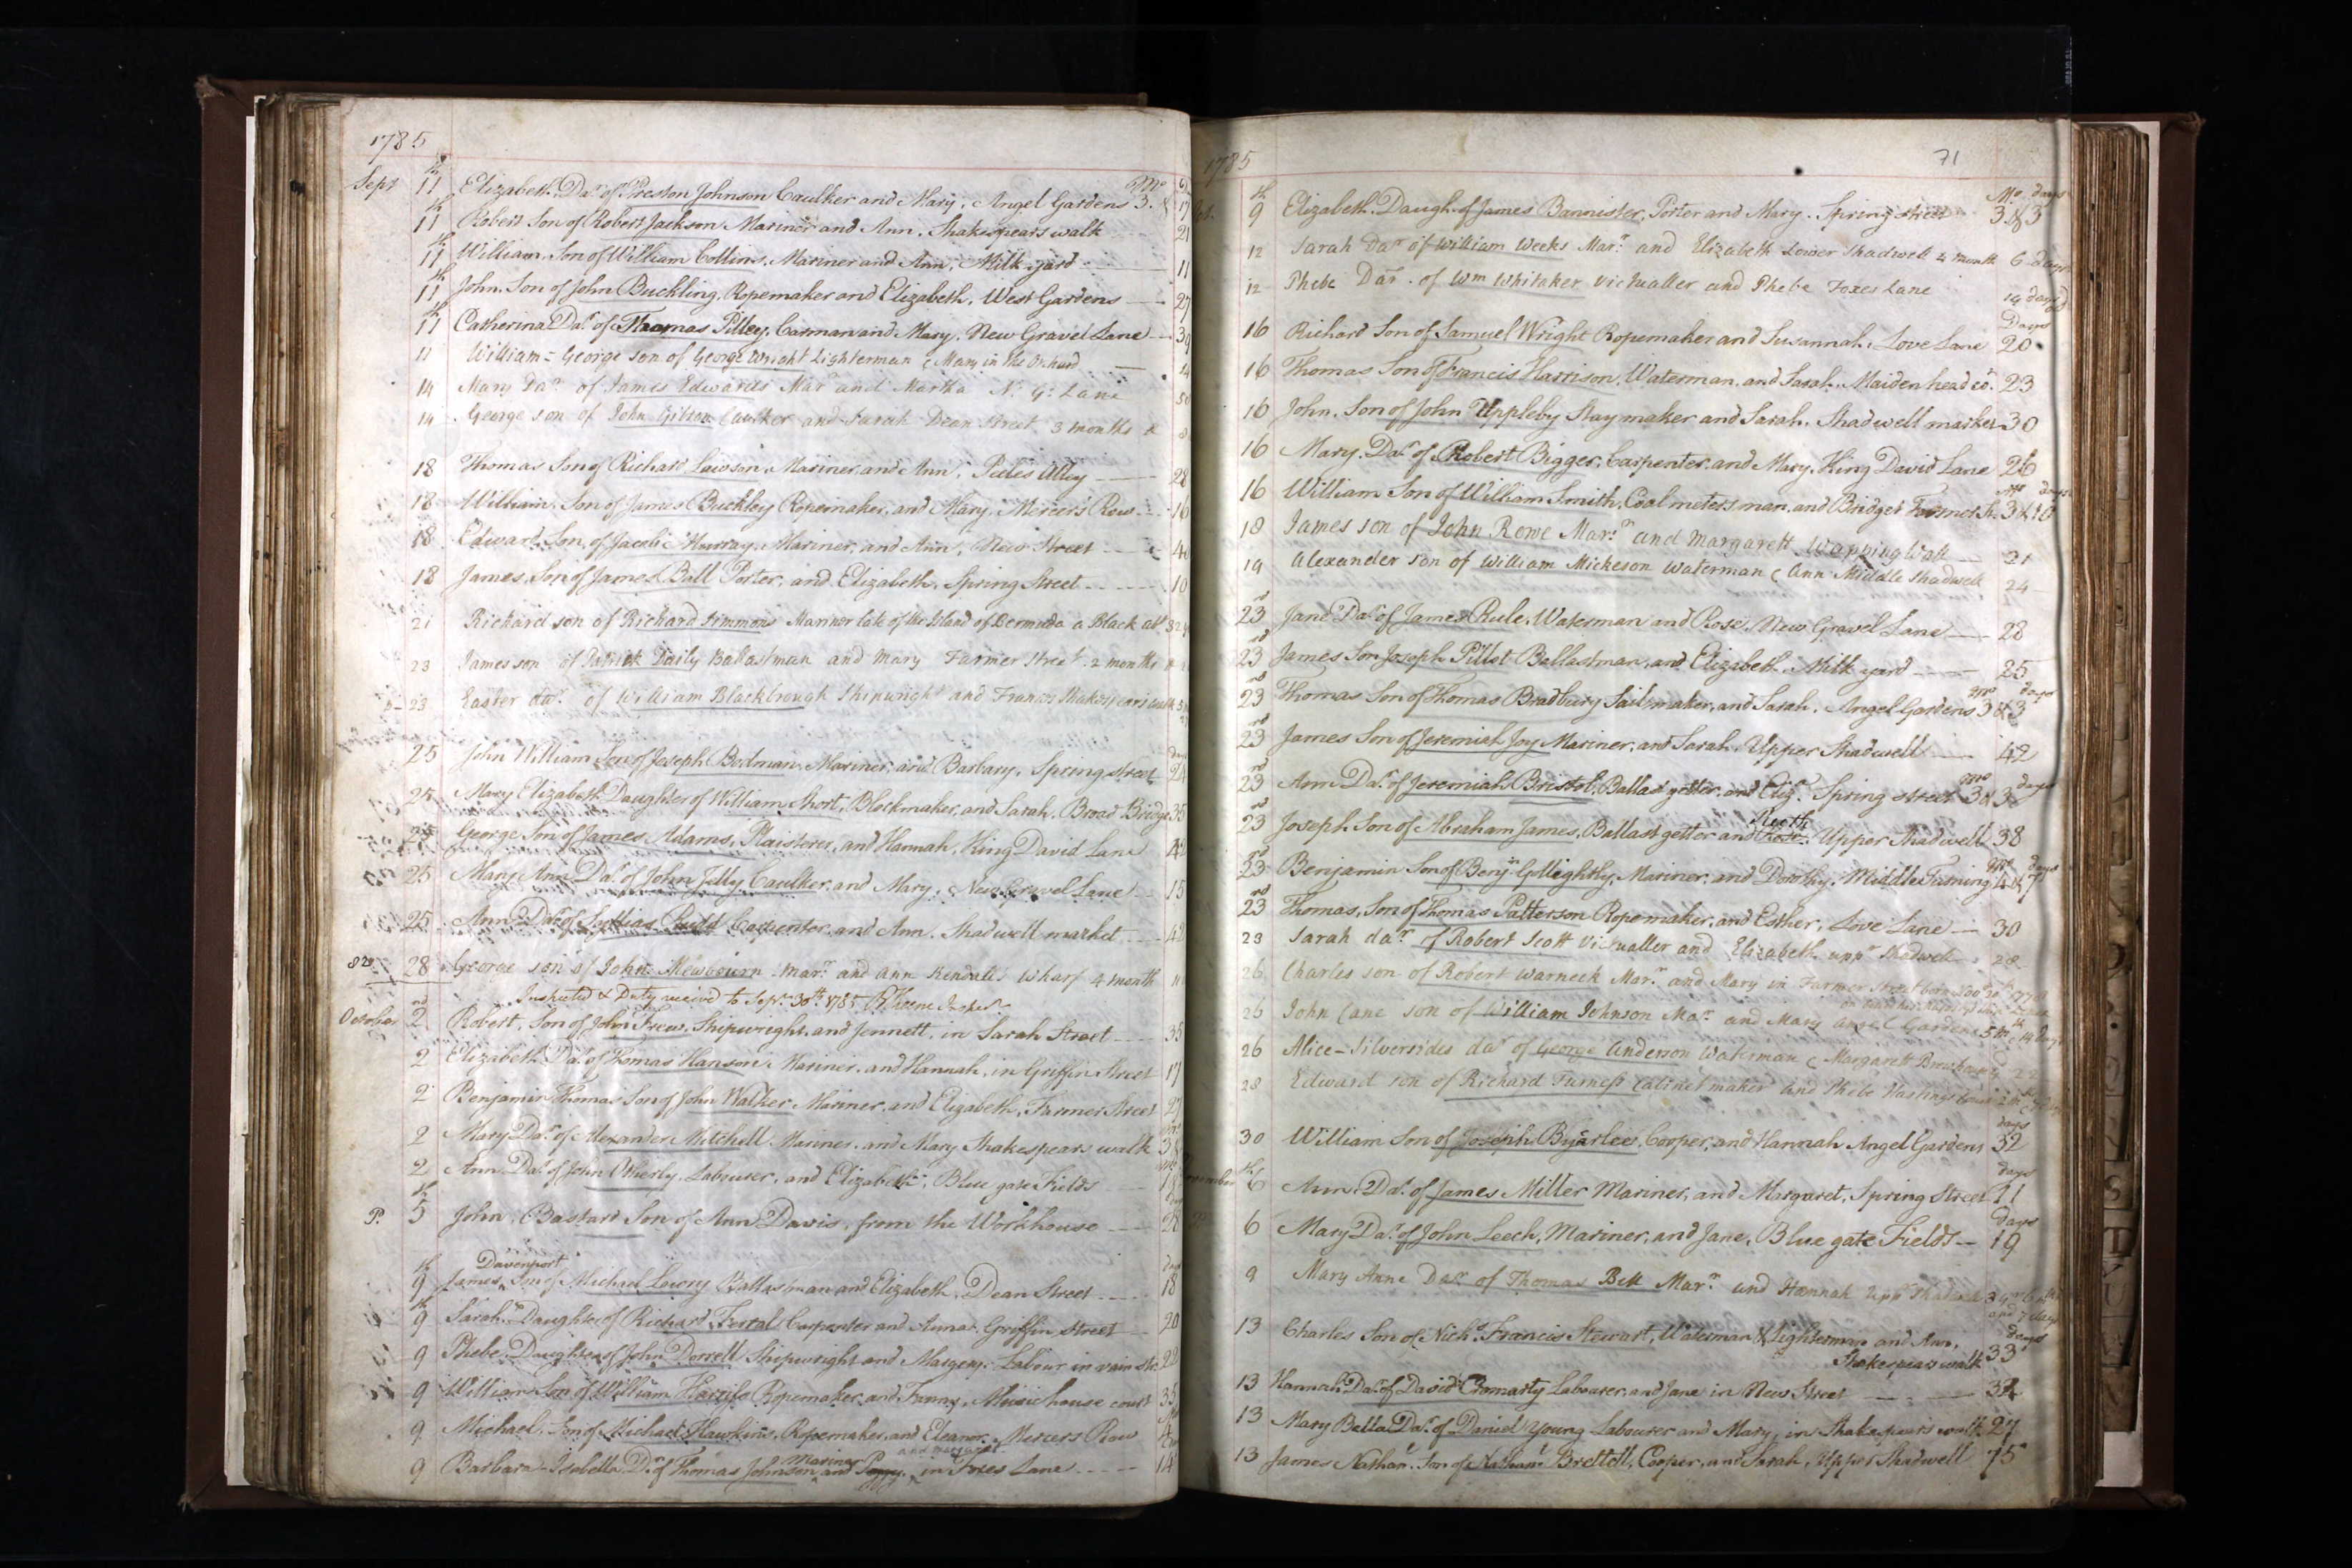 1785
Sept 11th Elizabeth Dar. of Preston Johnson Caulker and Mary, Angel Gardens 3. & 17
11th Robert Son of Robert Jackson Mariner and Ann, Shakespears walk 21
11th William, Son of William Collins, Mariner and Ann, Milk yard 11
11th John, Son of John Buckling, Ropemaker and Elizabeth, West Gardens 27
11th Catherina Dar. of Thomas Pilley, Carman and Mary, New Gravel Lane 39
11 William = George son of George Wright Lighterman & Mary in the Orchard 14
14 Mary Dar. of James Edwards Mar and Martha N: G: Lane
14 George son of John Gibson Caulker and Sarah Dean Street 3 months &
18 Thomas Son of Richard Lawson, Mariner and Ann, Peeles Alley 28
18 William, Son of James Buckley Ropemaker, and Mary, Mercer's Row 16
18 Edward, Son, of Jacob Murray, Mariner, and Ann, New Street
18 James, Son of James Ball Porter, and Elizabeth, Spring Street 10
21 Richard son of Richard Simmons Mariner late of the Island of Bermuda a Black
23 James son of Patrick Daily Ballastman and Mary Farmer Street 2 months
23 Easter dar. of William Blackbrough Shipwright and Frances Shakespears walk
25 John William Son of Joseph Bodman, Mariner, and Barbary, Spring street 24
25 Mary Elizabeth Daughter of William Short, Blockmaker, and Sarah, Broad Bridge 35
25 George Son of James Adams, Plaisterer, and Hannah, King David Lane 42
25 Mary Ann Dar. of John Jelly, Caulker, and Mary, New Gravel Lane 15
25 Ann Dar. of Rudd Carpenter, and Ann, Shadwell market 42
28 George son of John Newbourn Marr. and Ann Kendales Wharf 4 month
Inspected & Duty received to Sepr. 30th 1785
October 2nd Robert, Son of John Frew, Shipwright, and Jennett, in Sarah Street 35
2 Elizabeth Dar. of Thomas Hanson, Mariner, and Hannah, in Griffin Street 17
2 Benjamin Thomas Son of John Walker, Mariner, and Elizabeth, Farmer Street 27
2 Mary Dar. of Alexander Mitchell, Mariner, and Mary Shakespears walk
2 Ann Dar. of John Otherly, Labourer, and Elizabeth, Blue gate Fields
P. 5th John, Bastard Son of Ann Davis, from the Workhouse 28
Davenport
9th James, Son of Michael Lowry Ballastman and Elizabeth, Dean Street 18
9th Sarah, Daughter of Richard Carpenter and Anna, Griffin Street 20
9 Phebe, Daughter of John Dorrell Shipwright and Margery, Labour in vain str 22
9 William Son of William Ropemaker, and Fanny, Musick house court 35
9 Michael, Son of Michael Hawkins, Ropemaker, and Eleanor, Mercers Row
Mariner and Margaret
9 Barbara-Isabella Dr. of Thomas Johnson and Peggy, in Foxes Lane 14
1785 71
Oct. Mo. days
9th Elizabeth Daugh. of James Bannister, Porter and Mary, Spring street 3 & 3
12 Sarah Dar. of William Weeks Marr. and Elizabeth Lower Shadwell 2 month 6 days
12 Phebe Dar. of Wm Whitaker Victualler and Phebe Foxes Lane 19 days
Days
16 Richard Son of Samuel Wright Ropemaker and Susannah, Love Lane 20
16 Thomas Son of Francis Harrison, Waterman, and Sarah, Maidenhead Ct. 23
16 John, Son of John Uppleby Staymaker and Sarah, Shadwell market 30
16 Mary, Dar. of Robert Bigger, Carpenter, and Mary, King David Lane 26
16 William Son of William Smith, Coal meters man, and Bridget Farmer St. 3 & 10
18 James son of John Rowe Marr. and Margarett Wapping Wall 21
19 Alexander son of William Mickeson Waterman & Ann Middle Shadwell 24
23rd Jane Dar. of James Rule, Waterman and Rose, New Gravel Lane 28
23rd James Son Joseph Pillot Ballastman, and Elizabeth, Milk yard 25
23rd Thomas Son of Thomas Bradbury Sailmaker, and Sarah, Angel Gardens 3 & 3
23rd James Son of Jeremiah Joy Mariner, and Sarah, Upper Shadwell 42
23rd Ann Dar. of Jeremiah Bristol, Ballast getter, and Eliz. Spring street 3 & 3
23rd Joseph Son of Abraham James, Ballast getter and Ruth, Upper Shadwell 38
23rd Benjamin Son of Benjn Gollightly, Mariner, and Dorothy, Middle Turning 4 & 7
23rd Thomas, Son of Thomas Patterson Ropemaker, and Esther, Love Lane 30
23 Sarah dar. of Robert Scott Victualler and Elizabeth uppr Shadwell 28
26 Charles son of Robert Warneck Marr. and Mary in Farmer Street
26 John Cane son of William Johnson Marr. and Mary Angel Gardens
26 Alice-Silversides dar of George Anderson Waterman & Margarett
28 Edward son of Richard Furness Cabinet maker and Phebe Hastings
days
30 William Son of Joseph Byarlee, Cooper, and Hannah Angel Gardens 32
days
November 6th Ann, Dar. of James Miller Mariner, and Margaret, Spring Street 11
days
6 Mary Dar. of John Leech, Mariner, and Jane, Blue gate Fields 19
9 Mary Anne Dar. of Thomas Bell Marr. and Hannah uppr Shadwell
and 7 days
13 Charles Son of Nichs. Francis Stewart, Waterman & Lighterman and Ann, days
Shakespears walk 33
13 Hannah, Dar. of David Cromarty Labourer, and Jane in New Street
13 Mary Bella Dar. of Daniel Young Labourer and Mary, in Shakespears walk 27
13 James Nathanl. Son of Nathanl Brettell, Cooper, and Sarah, Upper Shadwell 75